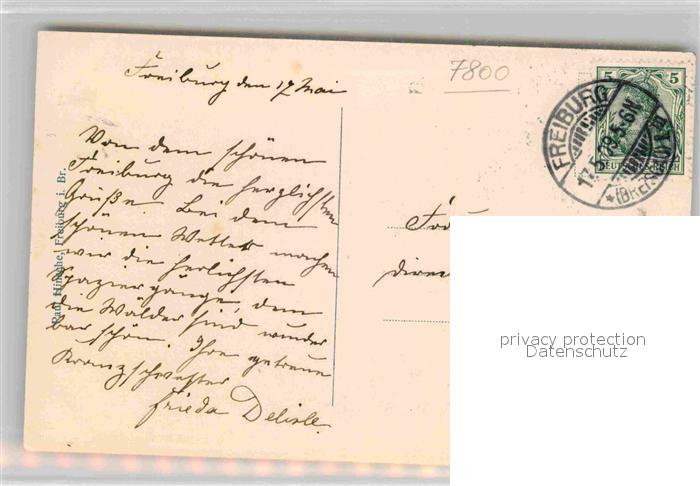 7800
Freiburg den 17 Mai
5 5
DEUTSCHES REICH
FREIBURG
17.5.09.5-6N.
*(BREISGAU)
Von dem schönen
Freiburg die herzlichsten
Grüße. Bei dem
schönen Wetter machen
wir die herlichsten
Spaziergänge, dem
die Wälder sind wunder
bar schön. Ihre getreue
Kranzschwester
Frieda Delisle.
Paul Hinsche, Freiburg i. Br.
privacy protection
Datenschutz